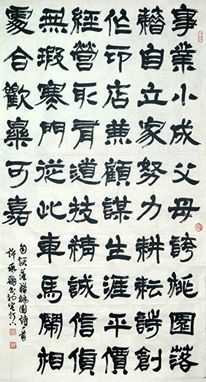 事業小成父母誇桃園落
藉自立家努力耕耘詩創
作印店兼顧謀生涯平價
經營取有道技精誠信實
無瑕寒門從此車馬鬧相
處合歡樂可嘉